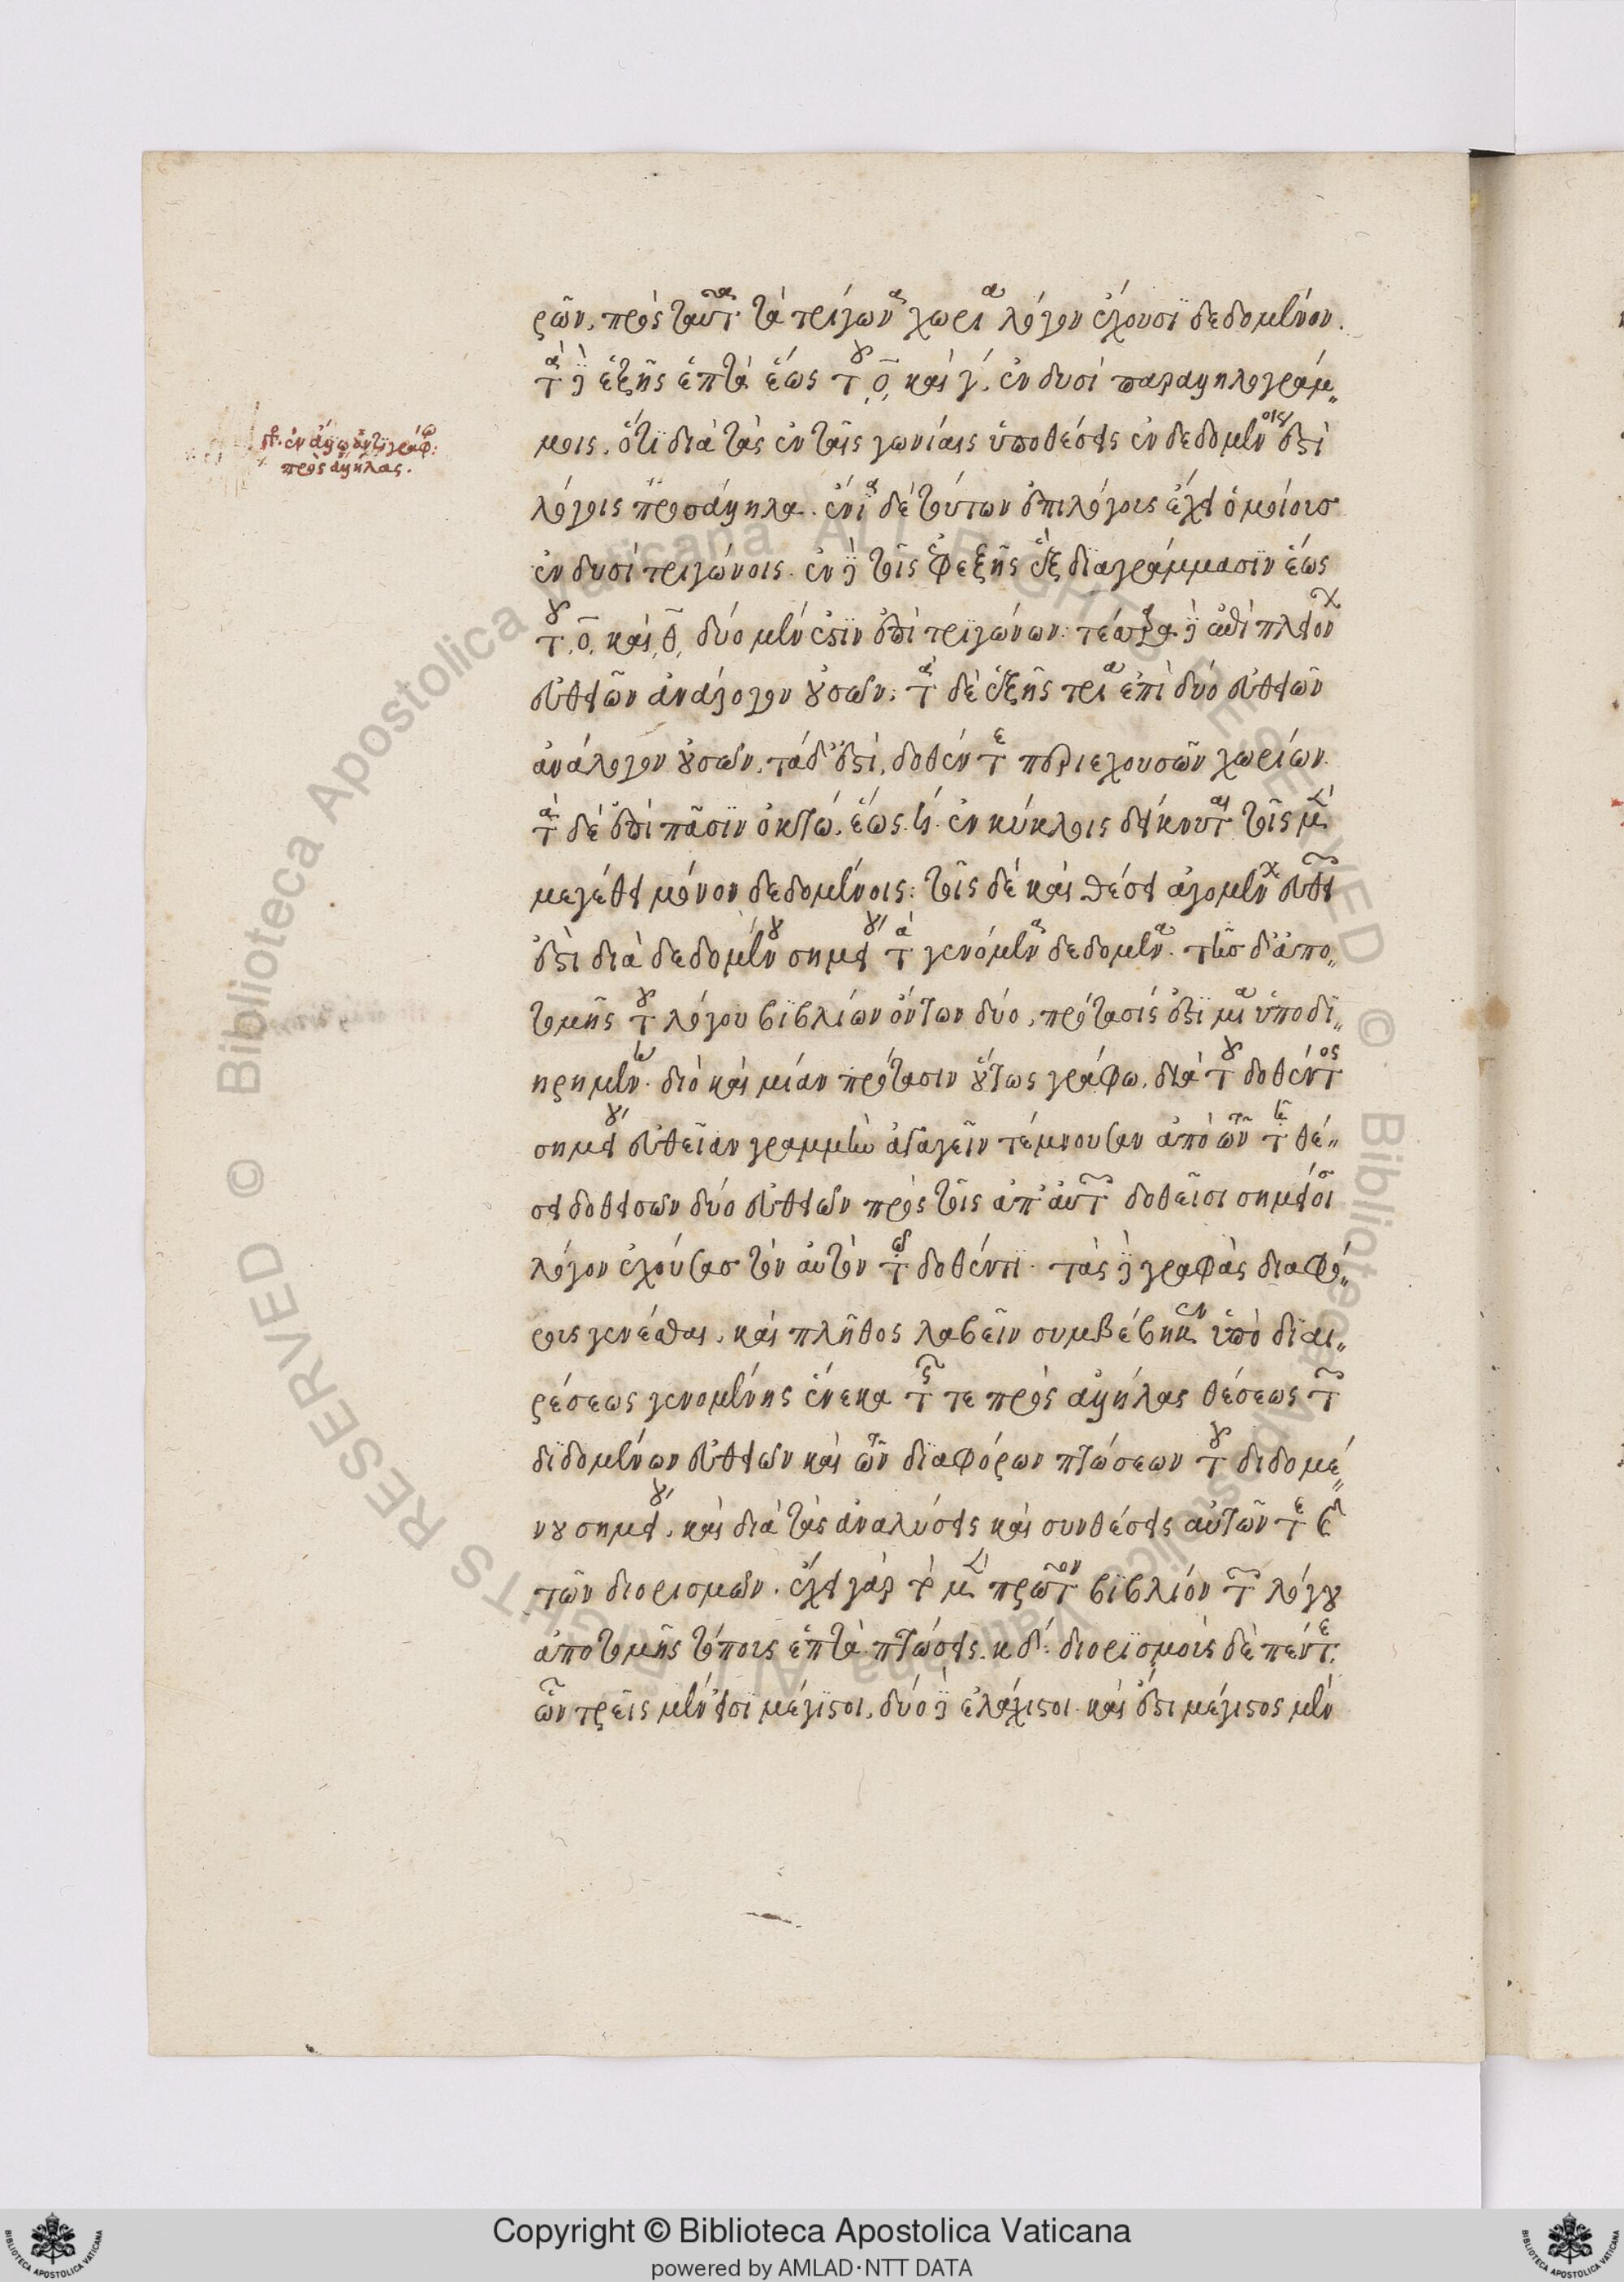 ρῶν, πρὸς ταῦτα τὰ τρίγωνα χωρία λόγον ἔχουσι δεδομένον.
τὰ δὲ ἑξῆς ἑπτὰ ἕως τοῦ ο καὶ γ, ἐν δυσὶ παραλληλογράμ„
μοις, ὅτι διὰ τὰς ἐν ταῖς γωνίαις ὑποθέσεις ἐν δεδομένοις ἐστὶ
λόγοις πρὸς ἄλληλα. ἔνια δὲ τούτων ἐπιλόγους ἔχει ὁμοίους
ἐν δυσὶ τριγώνοις. ἐν δὲ τοῖς ἐφεξῆς ἓξ διαγράμμασιν ἕως
τοῦ ο καὶ θ, δύο μέν ἐστιν ἐπὶ τριγώνων. τέσσαρα δὲ ἐπὶ πλειόνων
εὐθειῶν ἀνάλογον οὐσῶν. τὰ δὲ ἑξῆς τρία ἐπὶ δύο εὐθειῶν
ἀνάλογον οὐσῶν, τάδ' ἐστὶ, δοθέν τε περιεχουσῶν χωρίων.
τὰ δὲ ἐπὶ πᾶσιν ὀκτώ, ἕως ϟ. ἐν κύκλοις δείκνυται τοῖς μὲν
μεγέθει μόνον δεδομένοις· τοῖς δὲ καὶ θέσει ἀγομένων εὐθειῶν
ἐστι διὰ δεδομένου σημείου τὰ γενόμενα δεδομένα. τῆς δ' ἀπο„
τομῆς τοῦ λόγου βιβλίων ὄντων δύο, πρότασίς ἐστι μία ὑποδι„
ῃρημένη. διὸ καὶ μίαν πρότασιν οὕτως γράφω, διὰ τοῦ δοθέντος
σημείου εὐθεῖαν γραμμὴν ἀγαγεῖν τέμνουσαν ἀπὸ τῶν τῇ θέ„
σει δοθεισῶν δύο εὐθειῶν πρὸς τοῖς ἐπ' αὐτῶν δοθεῖσι σημείοις
λόγον ἐχούσας τὸν αὐτὸν τῷ δοθέντι. τὰς δὲ γραφὰς διαφό„
ρους γενέσθαι, καὶ πλῆθος λαβεῖν συμβέβηκεν ὑπὸ διαι„
ρέσεως γενομένης ἕνεκα τῆς τε πρὸς ἀλλήλας θέσεως τῶν
διδομένων εὐθειῶν καὶ τῶν διαφόρων πτώσεων τοῦ διδομέ„
νου σημείου, καὶ διὰ τὰς ἀναλύσεις καὶ συνθέσεις αὐτῶν τε καὶ
τῶν διορισμῶν. ἔχει γὰρ τὸ μὲν πρῶτον βιβλίον τοῦ λόγου
ἀποτομῆς τόπους ἑπτὰ. πτώσεις κδ. διορισμοὺς δὲ πέντε.
ὧν τρεῖς μέν εἰσι μέγιστοι, δύο δὲ ἐλάχιστοι. καὶ ἔστι μέγιστος μὲν
ἐν ἄλλῳ ἀντιγράφῳ:
πρὸς ἀλλήλας.
© Biblioteca Apostolica Vaticana ALL RIGHTS RESERVED © Biblioteca Apostolica Vaticana ALL RIGHTS RESERVED
Copyright © Biblioteca Apostolica Vaticana
powered by AMLAD·NTT DATA
BIBLIOTECA APOSTOLICA VATICANA
BIBLIOTECA APOSTOLICA VATICANA